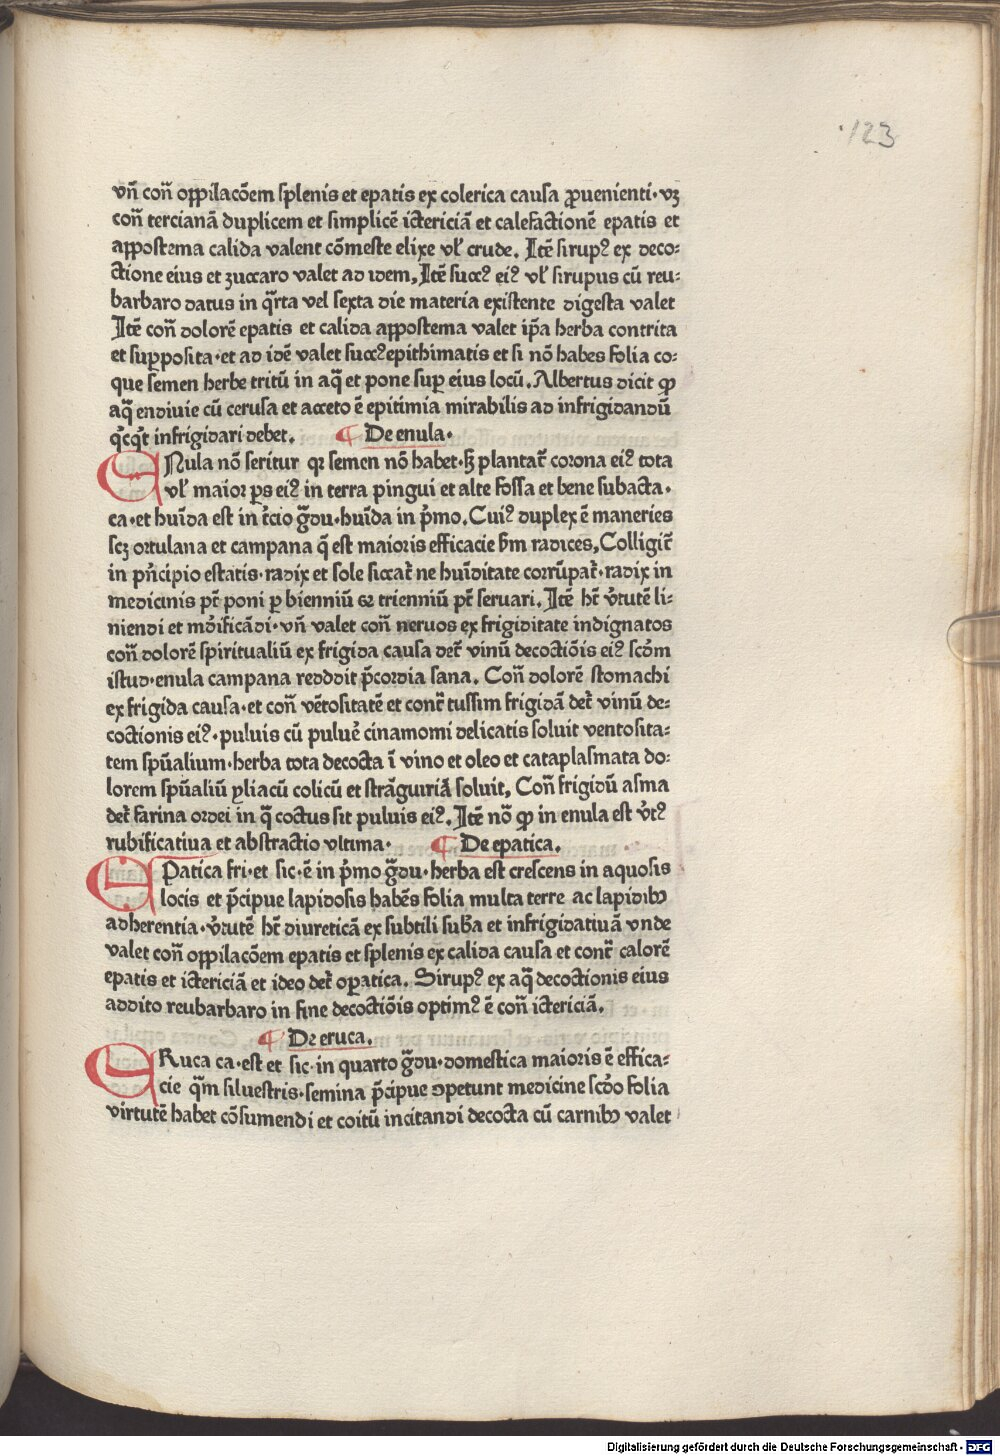 ·123
vn̄ con̄ oppilacōem splenis et epatis ex colerica causa ꝓuenienti· vꝫ
con̄ tercianā duplicem et simplicē ictericiā et calefactionē epatis et
appostema calida valent cōmeste elixe vl̓ crude. Itē sirupꝰ ex deco⸗
ctione eius et zuccaro valet ad idem, Itē succꝰ eiꝰ vl̓ sirupus cū reu⸗
barbaro datus in qͣrta vel sexta die materia existente digesta valet
Itē con̄ dolorē epatis et calida appostema valet ip̄a herba contrita
et supposita·et ad idē valet succꝰ epithimatis et si nō habes folia co⸗
que semen herbe tritū in aqͣ et pone suꝑ eius locū. Albertus dicit ꝙ
aqͣ endiuie cū cerusa et acceto ē epitimia mirabilis ad infrigidandū
qͥcqͥt infrigidari debet. ¶ De enula·
ENula nō seritur qꝛ semen nō habet·sꝫ plantat᷑ corona eiꝰ tota
vl̓ maior ꝑs eiꝰ in terra pingui et alte fossa et bene subacta·
ca·et hūida est in t͛cio gͣdu·hūida in pͥmo. Cuiꝰ duplex ē maneries
scꝫ ortulana et campana q̄ est maioris efficacie ẜm radices, Colligit᷑
in pͥncipio estatis·radix et sole siccat᷑ ne hūiditate corrūpat᷑·radix in
medicinis pt̄ poni ꝑ bienniū ⁊ trienniū pt̄ seruari. Itē ht̄ v͛tutē li⸗
niendi et mōificādi·vn̄ valet con̄ neruos ex frigiditate indignatos
con̄ dolorē spiritualiū ex frigida causa det᷑ vinū decoctiōis eiꝰ scōm
istud·enula campana reddit p̄cordia sana. Con̄ dolorē stomachi
ex frigida causa·et con̄ vētositatē et cont͛ tussim frigidā det᷑ vinū de⸗
coctionis eiꝰ·puluis cū puluer̄ cinamomi delicatis soluit ventosita⸗
tem spūalium·herba tota decocta ī vino et oleo et cataplasmata do⸗
lorem spūaliū yliacū colicū et strāguiriā soluit, Con̄ frigidū asma
det᷑ farina ordei in qͣ coctus sit puluis eiꝰ. Itē nō ꝙ in enula est v͛tꝰ
rubificatiua et abstractio vltima· ¶ De epatica.
EPatica fri·et sic·ē in pͥmo gͣdu·herba est crescens in aquosis
locis et p̄cipue lapidosis habēs folia multa terre ac lapidibꝰ
adherentia·v͛tutē ht̄ diureticā ex subtili suƀa et infrigidatiuā vnde
valet con̄ oppilacōem epatis et splenis ex calida causa et cont͛ calorē
epatis et ictericiā et ideo det᷑ oꝑatica. Sirupꝰ ex aqͣ decoctionis eius
addito reubarbaro in fine decoctiōis optimꝰ ē con̄ ictericiā.
¶ De eruca.
ERuca ca·est et sic·in quarto gͣdu·domestica maioris ē effica⸗
cie qͣm siluestris·semina p̄cipue ꝯpetunt medicine scd̄o folia
virtutē habet cōsumendi et coitū incitandi decocta cū carnibꝰ valet
Digitalisierung gefördert durch die Deutsche Forschungsgemeinschaft - DFG